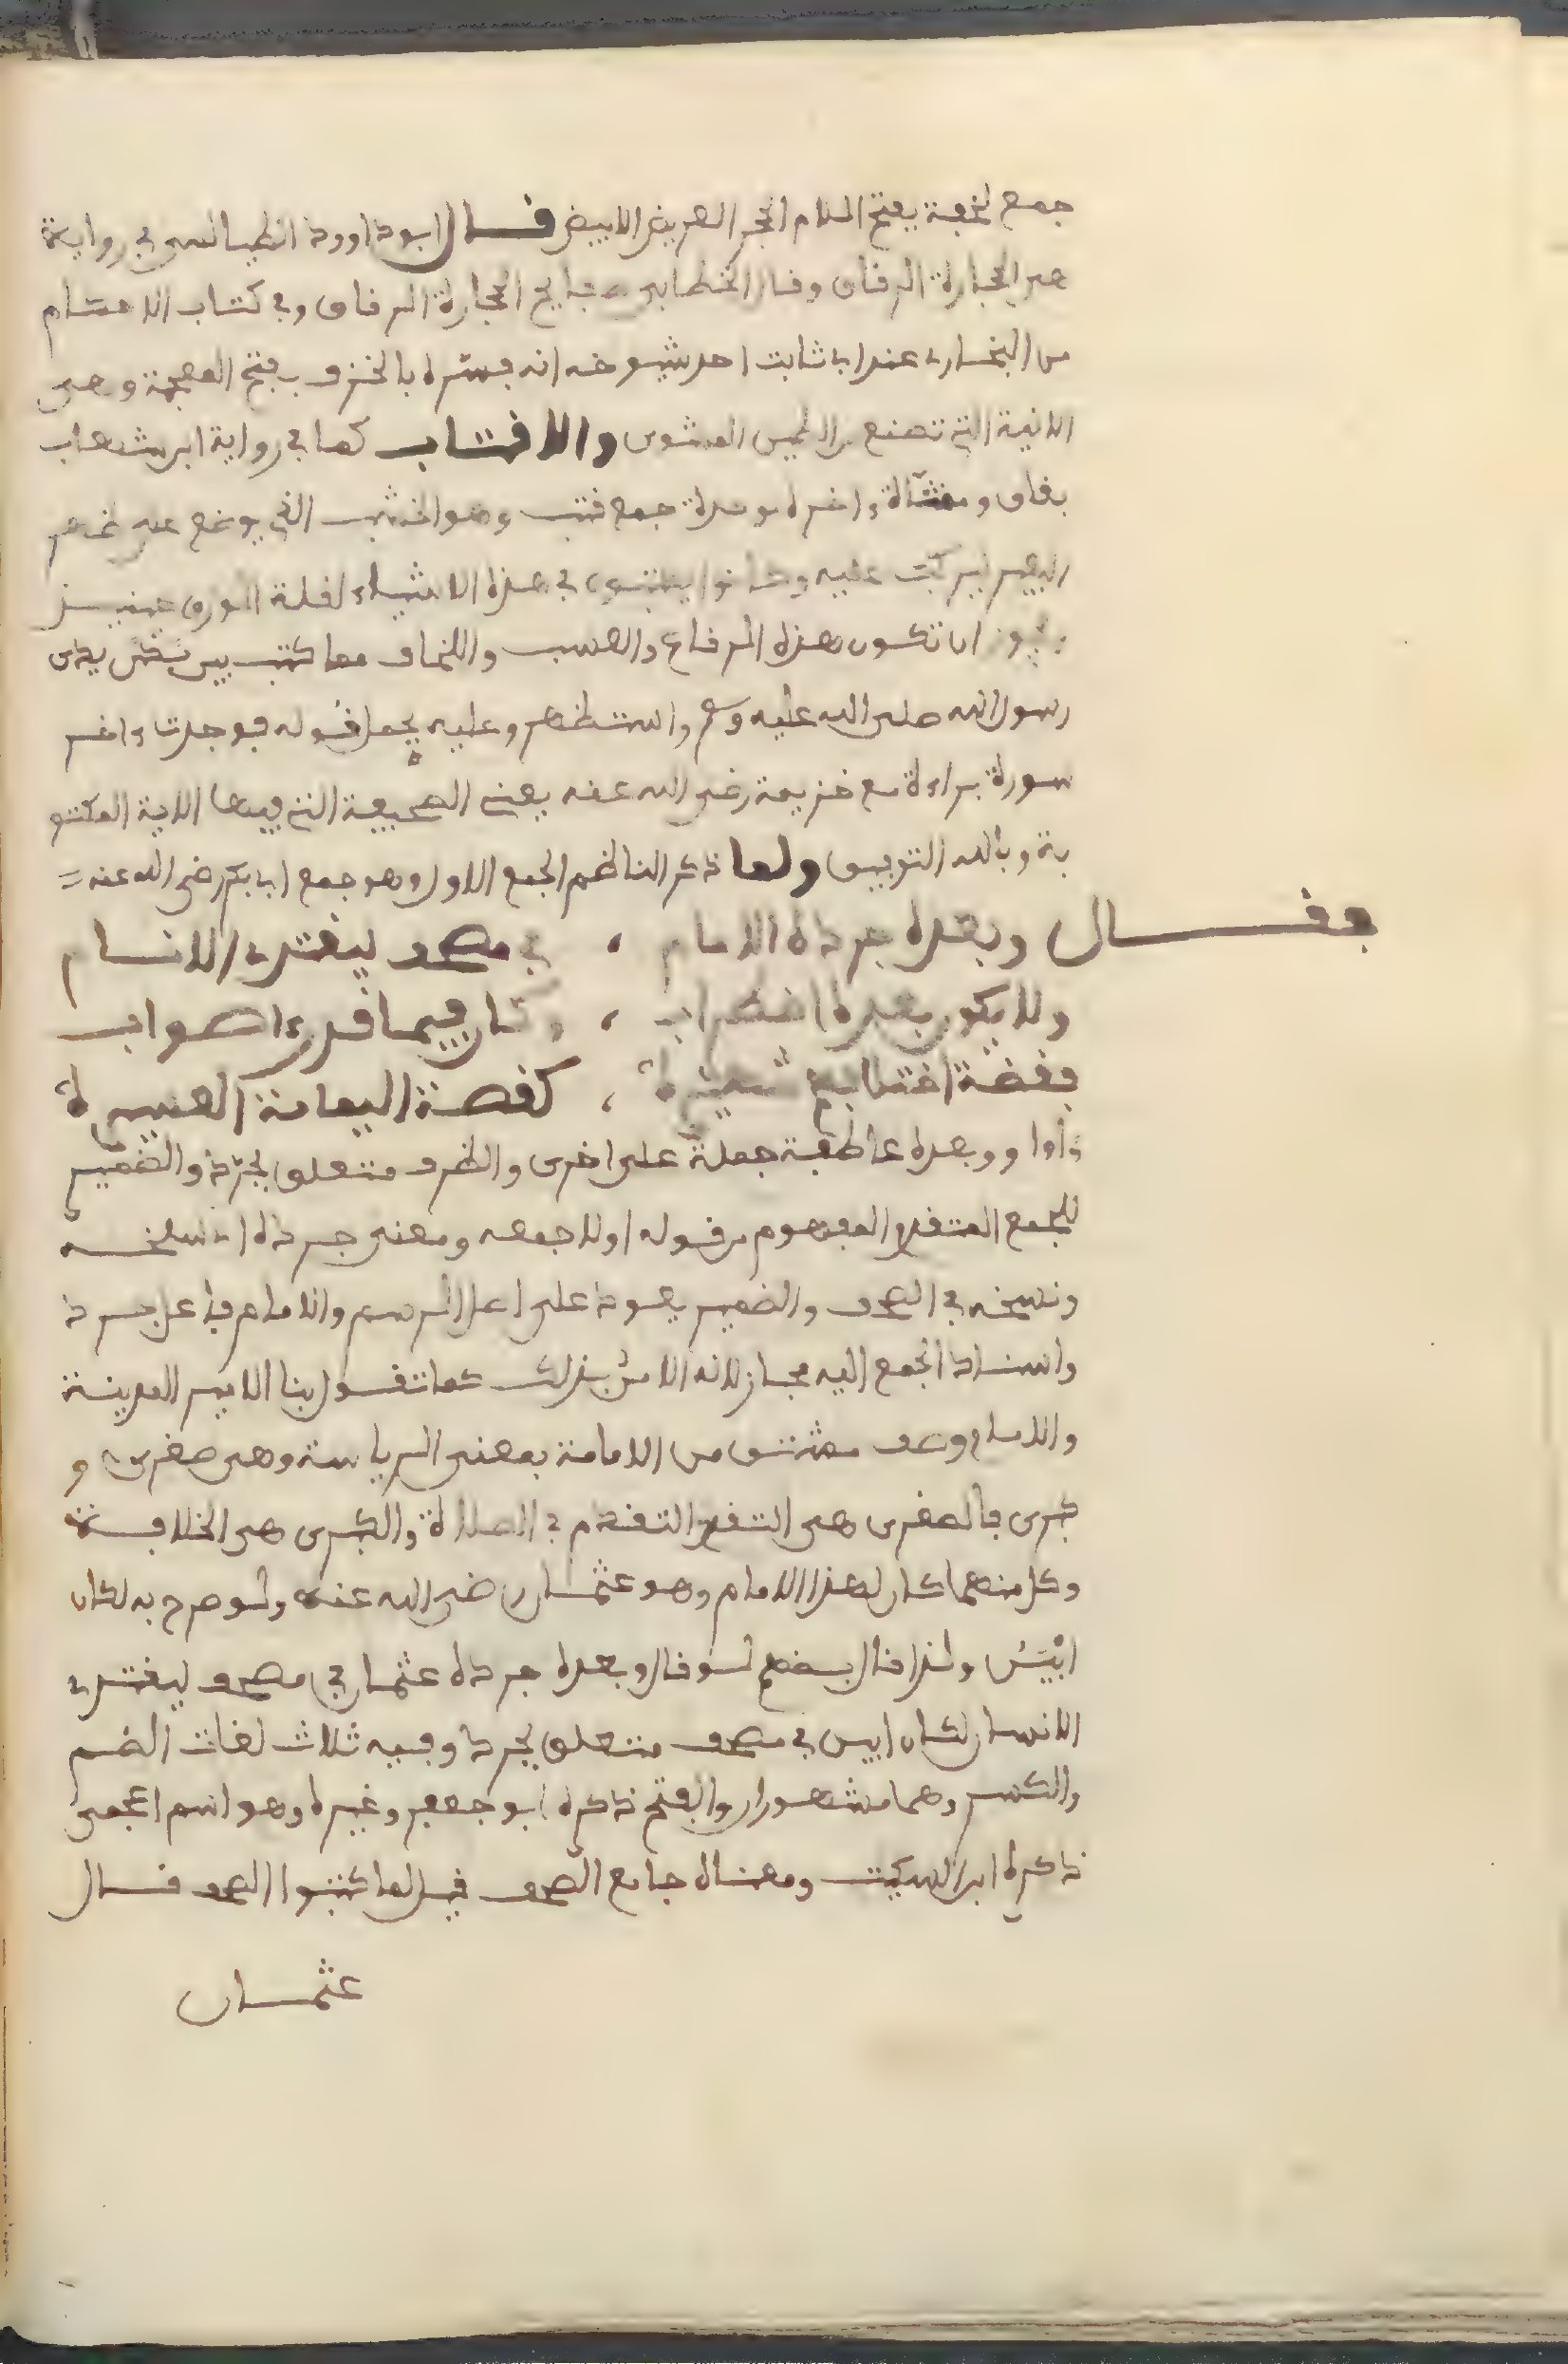 جمع لخفة بفتح اللام الحجر العريض الابيض قال ابو داوود الطيالسي في رواية
هي الحجارة الرقاق وقال الخطابي صفايح الحجارة الرقاق وفي كتاب الاحكام
من البخاري عند ابي ثابت احد شيوخه انه فسّره بالخزف بفتح المعجمة وهي
الانية التي تصنع من الطين المشوي والاقتاب كما في رواية ابن شهاب
بقاف ومثناة ءاخره موحدة جمع قتب وهو الخشب الذي يوضع على ظهر
البعير ليركب عليه وكانوا يكتبون في هذه الاشياء لقلة الورق حينيذ
ويجوز ان تكون هذه الرقاع والعسب واللخاف مما كتب بين يدي
رسول الله صلى الله عليه وسلم واستظهر وعليه يحمل قوله فوجدت ءاخر
سورة براءة مع خزيمة رضي الله عنه يعني الصحيفة التي فيها الاية المكتو
بة وبالله التوفيق ولما ذكر الناظم الجمع الاول وهو جمع ابي بكر رضي الله عنه
فقال وبعده جرده الامام ، في مصحف ليقتدي الانام
ولا يكون بعده اضطراب ، وكان فيما قد رءا صواب
فقصة اختلافهم شهيرة ، كقصة اليمامة العسيرة
ءاوا ووبعده عاطفة جملة على اخرى والظرف متعلق بجرّد والضمير
للجمع المتقدم المفهوم من قوله اولا جمعه ومعنى جرده اي سلخه
ونسخه في الصحف والضمير يعود على اعل الرسم والامام فاعل جرد
واسناد الجمع اليه مجاز لانه الامر بذلك كما تقول بنا الامير المدينة
والامام وصف مشتق من الامامة بمعنى الرياسة وهي صغرى و
كبرى فالصغرى هي التقدم في الصلاة والكبرى هي الخلافة
وكل منهما كان لهذا الامام وهو عثمان رضي الله عنه ولو صرح به لكان
ابْيَنُ ولذا قال بعضهم لو قال وبعده جرده عثمان في مصحف ليقتدي
الانسان لكان ابين في مصحف متعلق بجرد وفيه ثلاث لغات الضم
والكسر وهما مشهوران والفتح ذكره ابو جعفر وغيره وهو اسم اعجمي
ذكره ابن السكيت ومعناه جامع الصحف قيل لما كتبوا الصحف قال
عثمان